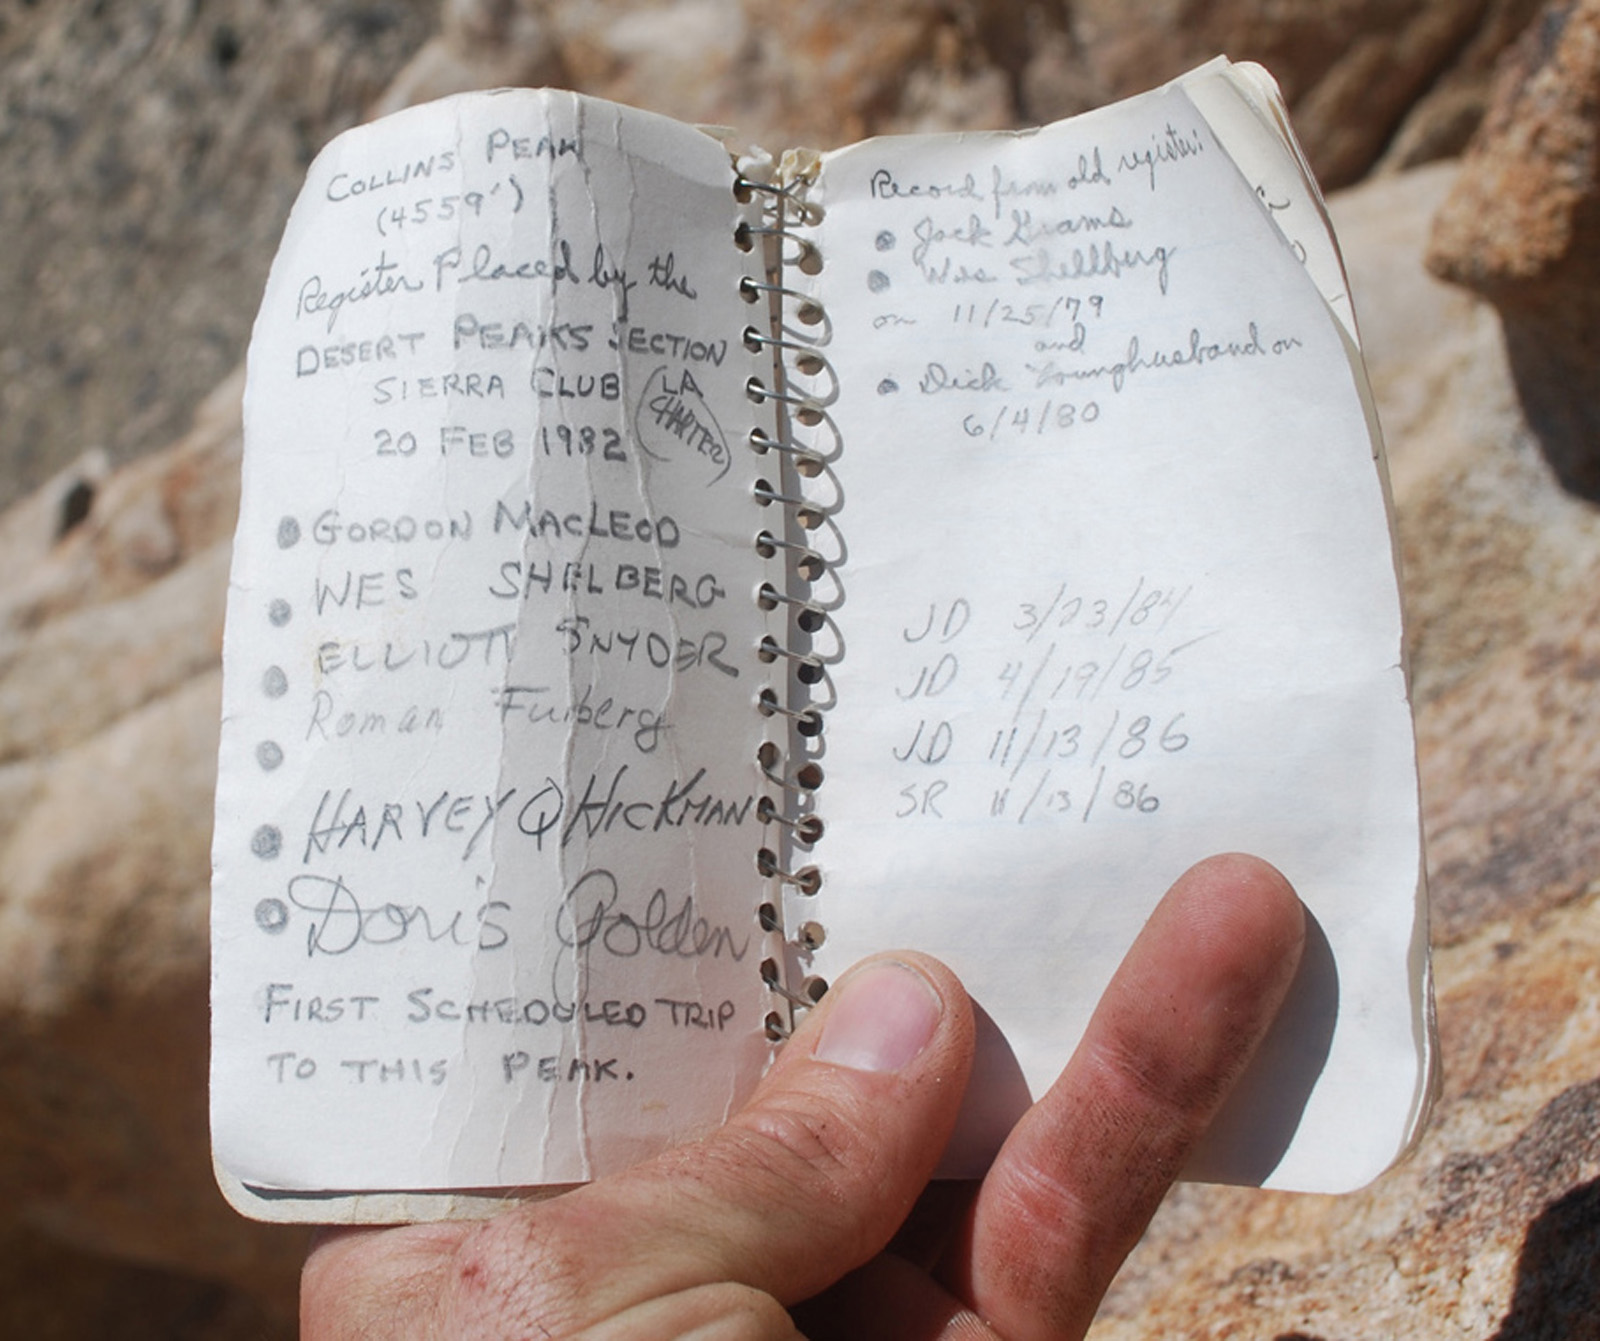 COLLINS PEAK
(4559')
Register Placed by the
DESERT PEAKS SECTION
SIERRA CLUB (LA CHAPTER)
20 FEB 1982
GORDON MACLEOD
WES SHELBERG
ELLIOTT SNYDER
Roman
HARVEY Q HICKMAN
Doris Golden
FIRST SCHEDULED TRIP
TO THIS PEAK.
Record from old register:
Jack Grams
Wes Shellberg
on 11/25/79
and
Dick Younghusband on
6/4/80
JD 3/23/84
JD 4/19/85
JD 11/13/86
SR 11/13/86